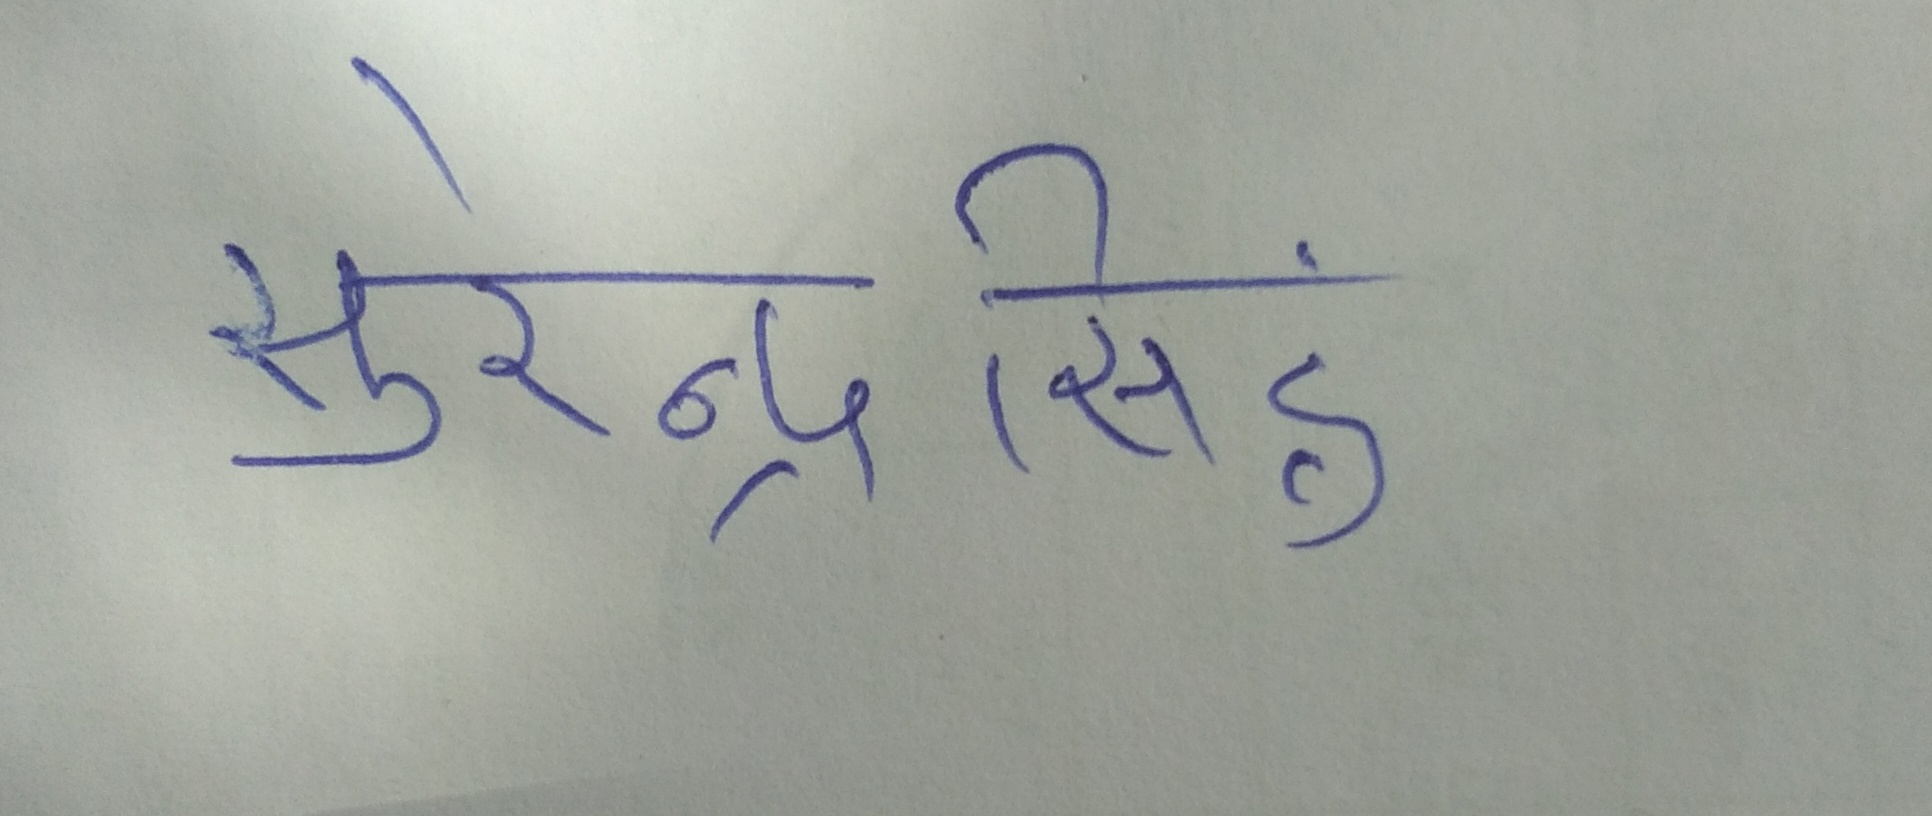 सुरेन्द्र सिंह